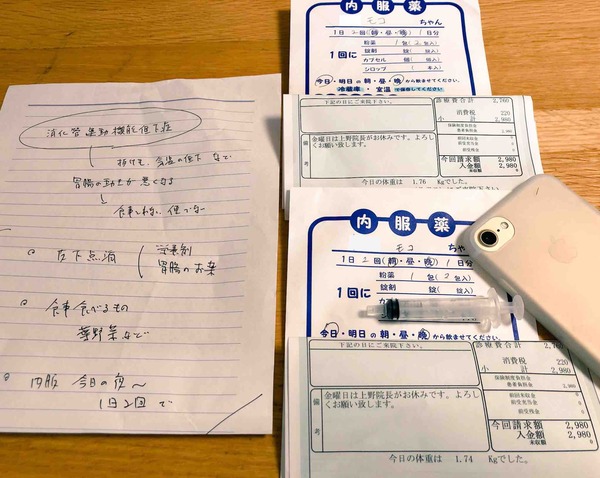 消化管運動機能低下症
抜け毛、気温の低下 などで
胃腸の動きが悪くなる
食事しない、便でない
皮下点滴
栄養剤
胃腸のお薬
食事 食べるもの
葉野菜など
内服 今日の夜〜
1日2回で
内服薬
モコ ちゃん
1日 2回(朝・昼・晩) 1日分
1回に
粉薬 1包(2包入)
錠剤 錠( 錠入)
カプセル 個( 個入)
シロップ ( 本入)
今日・明日の 朝・昼・晩 から飲ませてください。
冷蔵庫・室温で保存してください
下記の日にご来院下さい。
備考
金曜日は上野院長がお休みです。よろしくお願い致します。
診療費合計 2,760
消費税 220
小計 2,980
保険制度負担金
患者負担金 2,980
前回未収金 0
前受充当金 0
前受残金 0
今回請求額 2,980
入金額 2,980
未収額 0
今日の体重は 1.76 Kgでした。
内服薬
モコ ちゃん
1日 2回(朝・昼・晩) 1日分
1回に
粉薬 1包(2包入)
錠剤 錠( 錠入)
今日・明日の 朝・昼・晩 から飲ませてください。
下記の日にご来院下さい。
備考
金曜日は上野院長がお休みです。よろしくお願い致します。
診療費合計 2,76
消費税 220
小計 2,980
保険制度負担金
患者負担金 2,980
前回未収金 0
前受充当金 0
前受残金 0
今回請求額 2,980
入金額 2,980
未収額 0
今日の体重は 1.74 Kgでした。